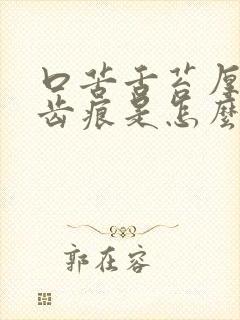 口苦舌苔厚
齿痕是怎麽
郭在容